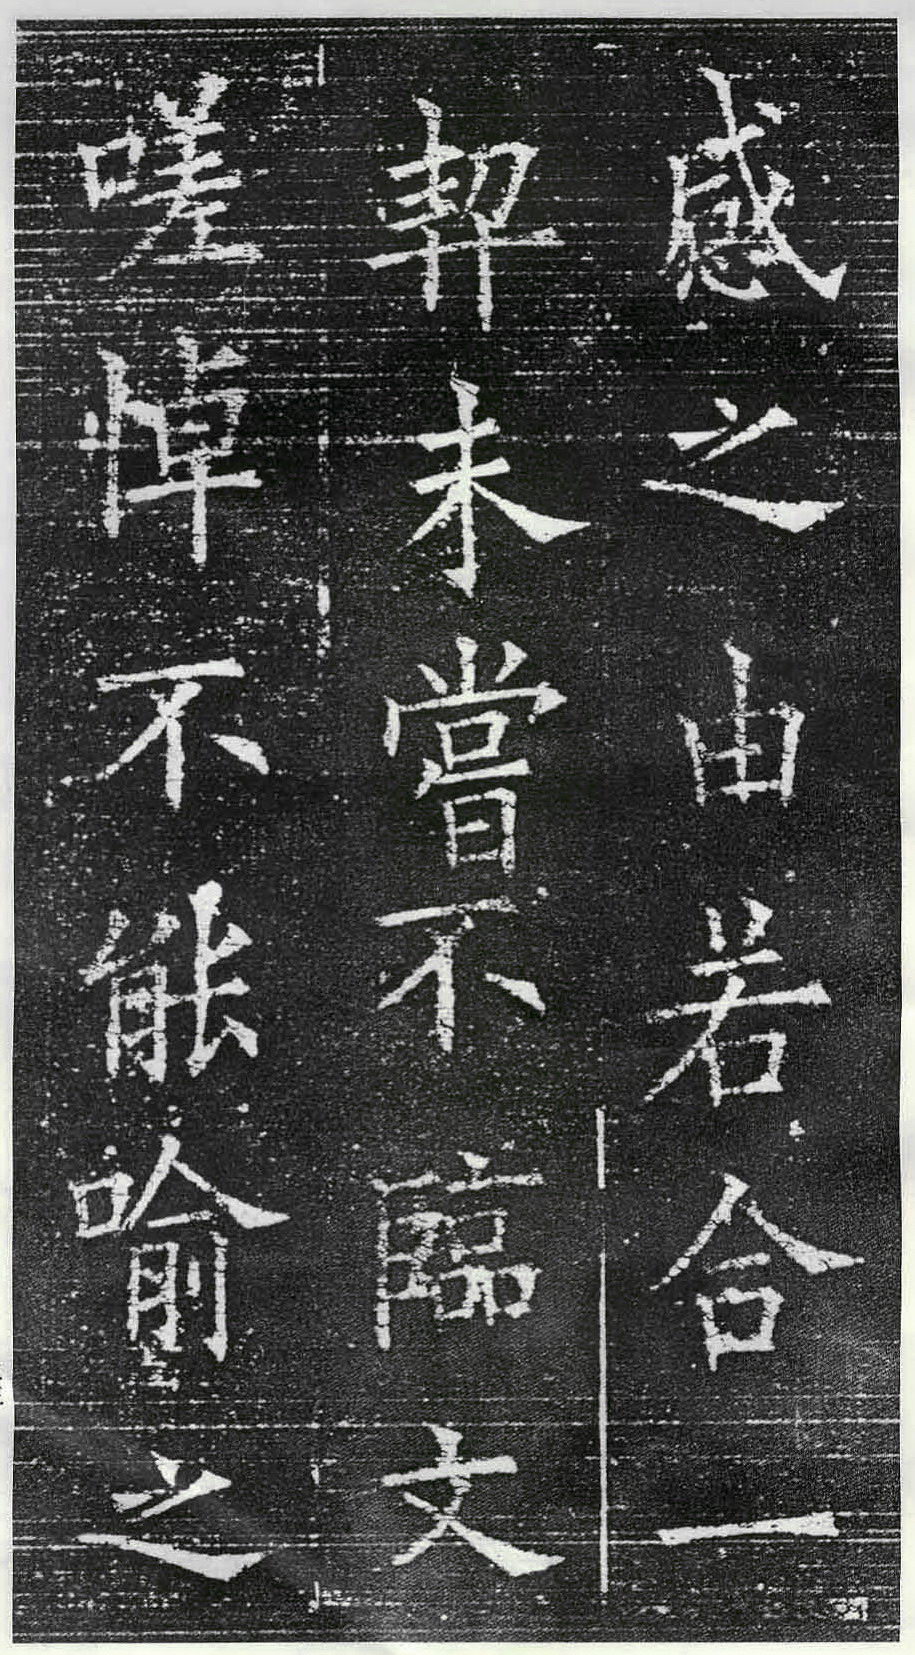 感之由若合一
契未嘗不臨文
嗟悼不能喻之